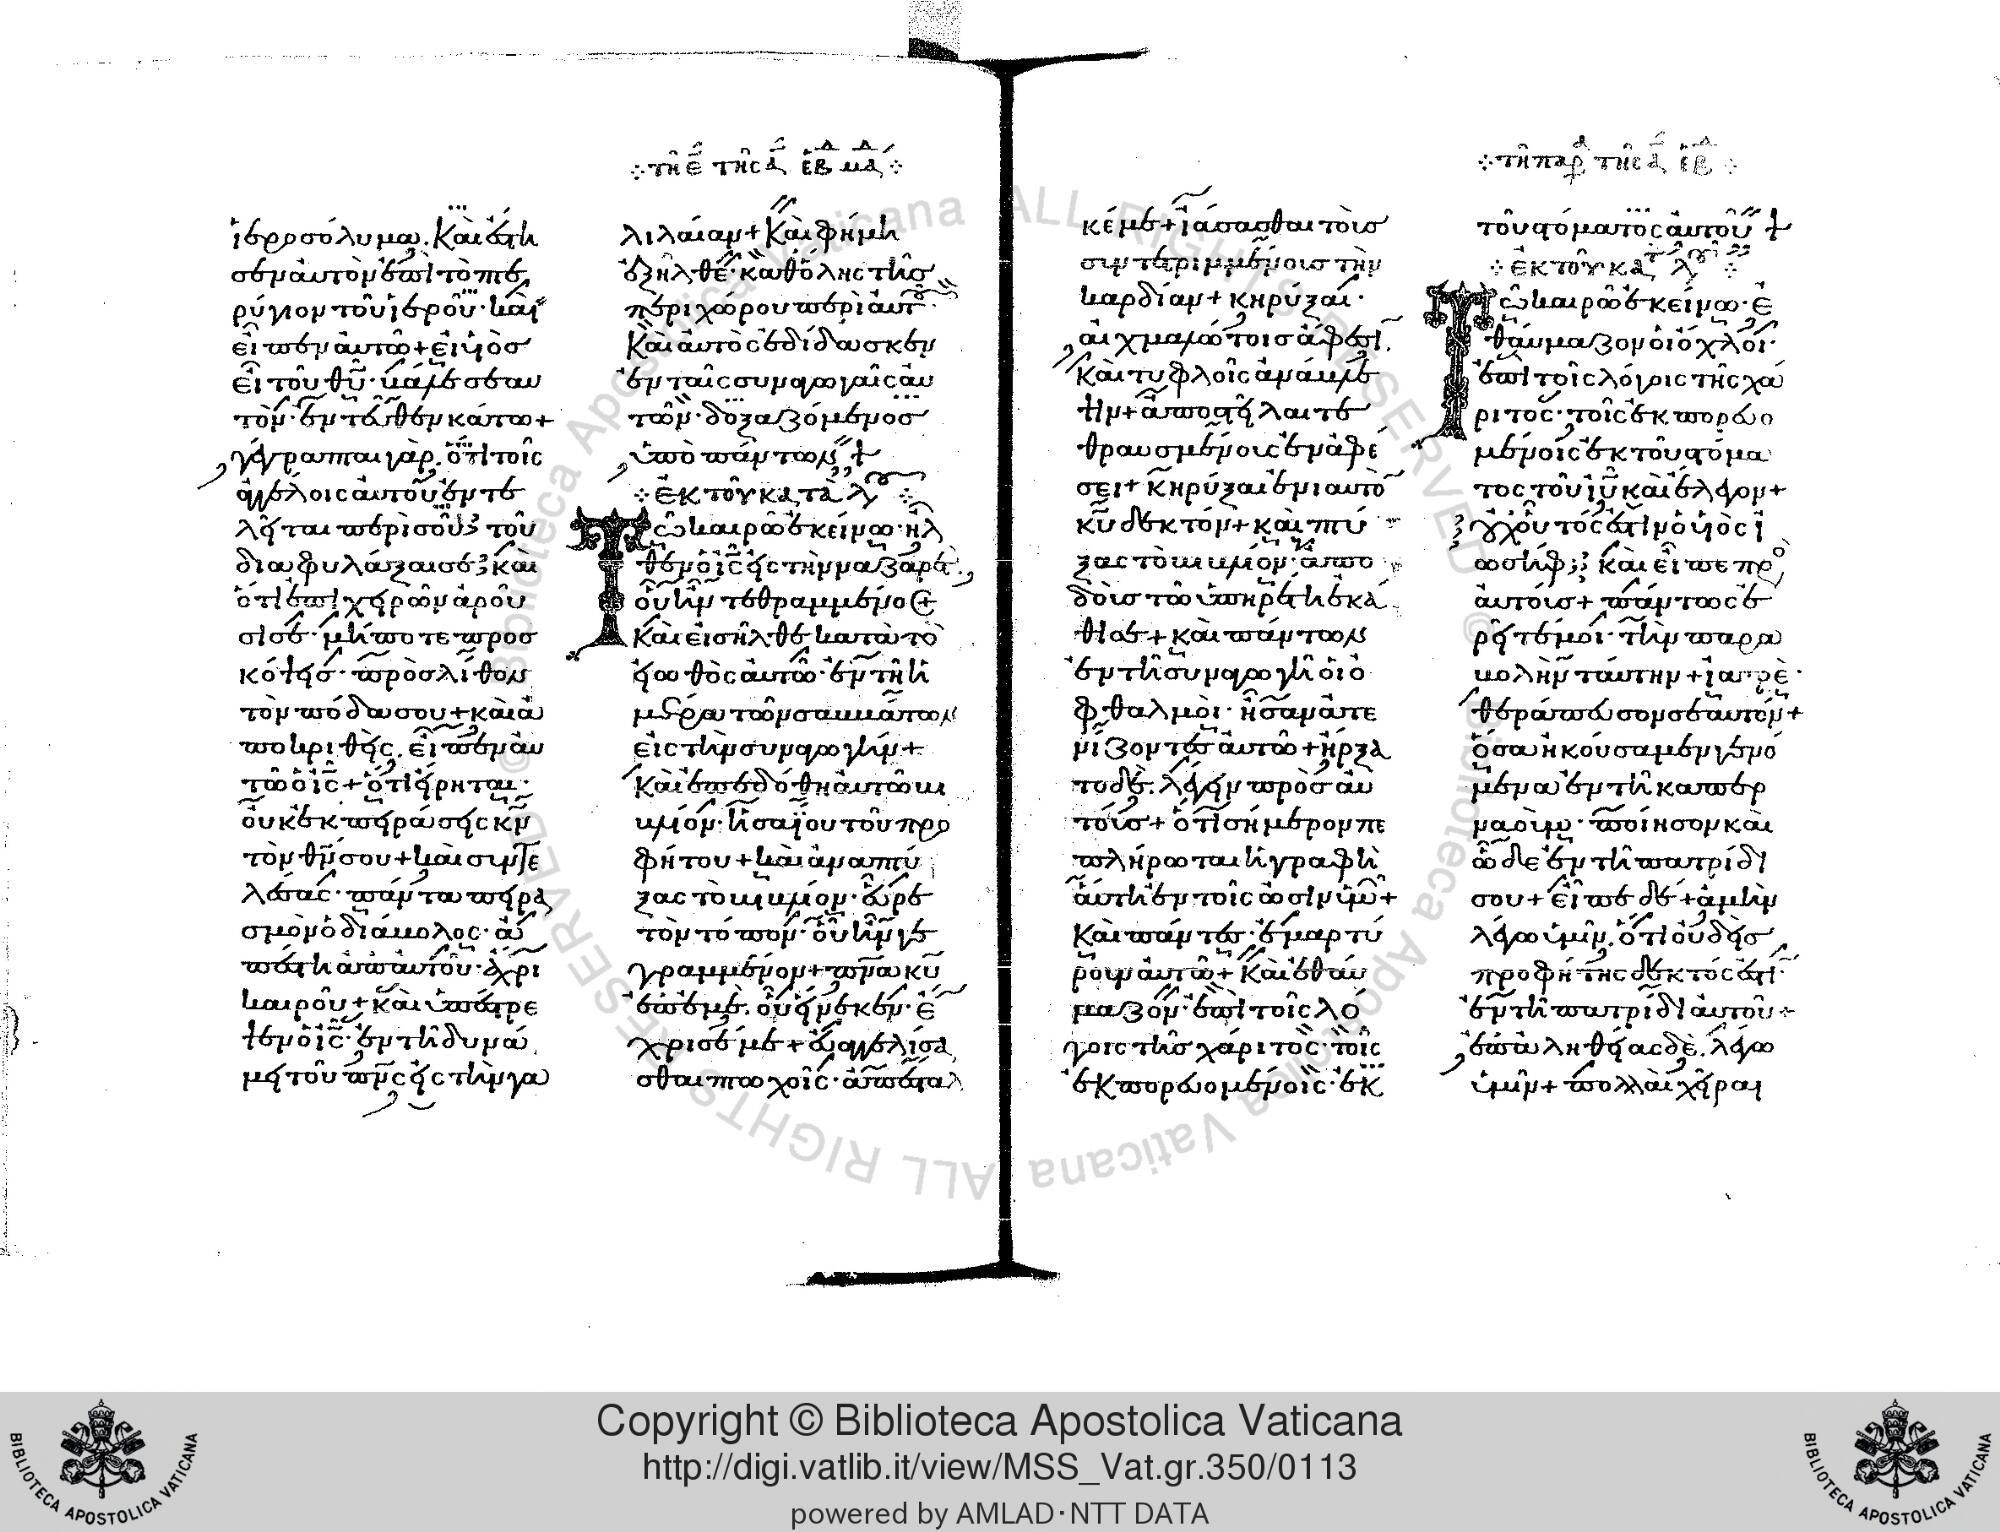 ἱεροσόλυμα. Καὶ ἔστη
σεν αὐτὸν ἐπὶ τὸ πτε
ρύγιον τοῦ ἱεροῦ· καὶ
εἶπεν αὐτῶ + εἰ υἱὸς
εἶ τοῦ θυ· βάλε σεαυ
τὸν· ἐντεῦθεν κάτω +
γέγραπται γὰρ. ὅτι τοῖς
ἀγγέλοις αὐτοῦ ἐντε
λεῖται περὶ σοῦ τοῦ
διαφυλάξαι σε καὶ
ὅτι ἐπὶ χειρῶν ἀροῦ
σί σε· μήποτε προσ
κόψης· πρὸς λίθον
τὸν πόδα σου + καὶ ἀ
ποκριθεὶς. εἶπεν αὐ
τῶ ὁ ις + ὅτι εἴρηται·
οὐκ ἐκπειράσεις κν
τὸν θν σου + καὶ συντε
λέσας· πάντα πειρα
σμὸν ὁ διάβολος· ἀ
πέστη ἀπ αὐτοῦ· ἄχρι
καιροῦ + καὶ ὑπέστρε
ψεν ὁ ις· ἐν τῆ δυνά
μει τοῦ πνς εἰς τὴν γα
τῆ ε τῆς α ἑβδ μα
λιλαίαν + Καὶ φήμη
ἐξῆλθε· καθ ὅλης τῆς
περιχώρου περὶ αὐτοῦ
Καὶ αὐτὸς ἐδίδασκεν
ἐν ταῖς συναγωγαῖς αὐ
τῶν· δοξαζόμενος
ὑπὸ πάντων
ἐκ τοῦ κατὰ λου
Τῶ καιρῶ ἐκείνω· ἦλ
θεν ὁ ις εἰς τὴν ναζαρέτ,
οὗ ἦν τεθραμμένος +
Καὶ εἰσῆλθε κατὰ τὸ
εἰωθὸς αὐτῶ· ἐν τῆ ἡ
μέρα τῶν σαββάτων
εἰς τὴν συναγωγὴν +
Καὶ ἐπεδόθη αὐτῶ βι
βλίον· ἡσαΐου τοῦ προ
φήτου + καὶ ἀναπτύ
ξας τὸ βιβλίον· εὗρε
τὸν τόπον· οὗ ἦν γε
γραμμένον + πνα κυ
ἐπ ἐμὲ. οὗ εἵνεκεν· ἔ
χρισέ με + εὐαγγελίσα
σθαι πτωχοῖς· ἀπέσταλ
κέ με + ἰάσασθαι τοὺς
συντετριμμένους τὴν
καρδίαν + κηρύξαι·
αἰχμαλώτοις ἄφεσι.
Καὶ τυφλοῖς ἀνάβλε
ψιν + ἀποστεῖλαι τε
θραυσμένους ἐν ἀφέ
σει + κηρύξαι ἐνιαυτὸ
κυ δεκτόν + καὶ πτύ
ξας τὸ βιβλίον· ἀπο
δοὺς τῶ ὑπηρέτη ἐκά
θισε + καὶ πάντων
ἐν τῆ συναγωγῆ οἱ ὀ
φθαλμοὶ· ἦσαν ἀτε
νίζοντες αὐτῶ + ἤρξα
το δὲ. λέγειν πρὸς αὐ
τούς + ὅτι σήμερον πε
πλήρωται ἡ γραφὴ
αὕτη ἐν τοῖς ὠσὶν ὑμῶν +
Καὶ πάντες· ἐμαρτύ
ρουν αὐτῶ + Καὶ ἐθαύ
μαζον· ἐπὶ τοῖς λό
γοις τῆς χάριτος· τοῖς
ἐκπορευομένοις· ἐκ
τῆ παρ τῆς α ἑβδ
τοῦ στόματος αὐτοῦ
ἐκ τοῦ κατ λου
Τῶ καιρῶ ἐκείνω· ἐ
θαύμαζον οἱ ὄχλοι·
ἐπὶ τοῖς λόγοις τῆς χά
ριτος· τοῖς ἐκπορευο
μένοις ἐκ τοῦ στόμα
τος τοῦ ιυ καὶ ἔλεγον +
οὐχ οὗτός ἐστιν ὁ υἱὸς ἰ
ωσήφ; Καὶ εἶπε πρὸ
αὐτούς + πάντως ἐ
ρεῖτέ μοι· τὴν παρα
βολὴν ταύτην + ἰατρὲ·
θεράπευσον σεαυτόν +
ὅσα ἠκούσαμεν γενό
μενα ἐν τῆ καπερ
ναούμ· ποίησον καὶ
ὧδε ἐν τῆ πατρίδι
σου + εἶπε δὲ + ἀμὴν
λέγω ὑμῖν. ὅτι οὐδεὶς
προφήτης δεκτός ἐστι·
ἐν τῆ πατρίδι αὐτοῦ +
ἐπ ἀληθείας δὲ. λέγω
ὑμῖν + πολλαὶ χῆραι
Copyright © Biblioteca Apostolica Vaticana
http://digi.vatlib.it/view/MSS_Vat.gr.350/0113
powered by AMLAD·NTT DATA